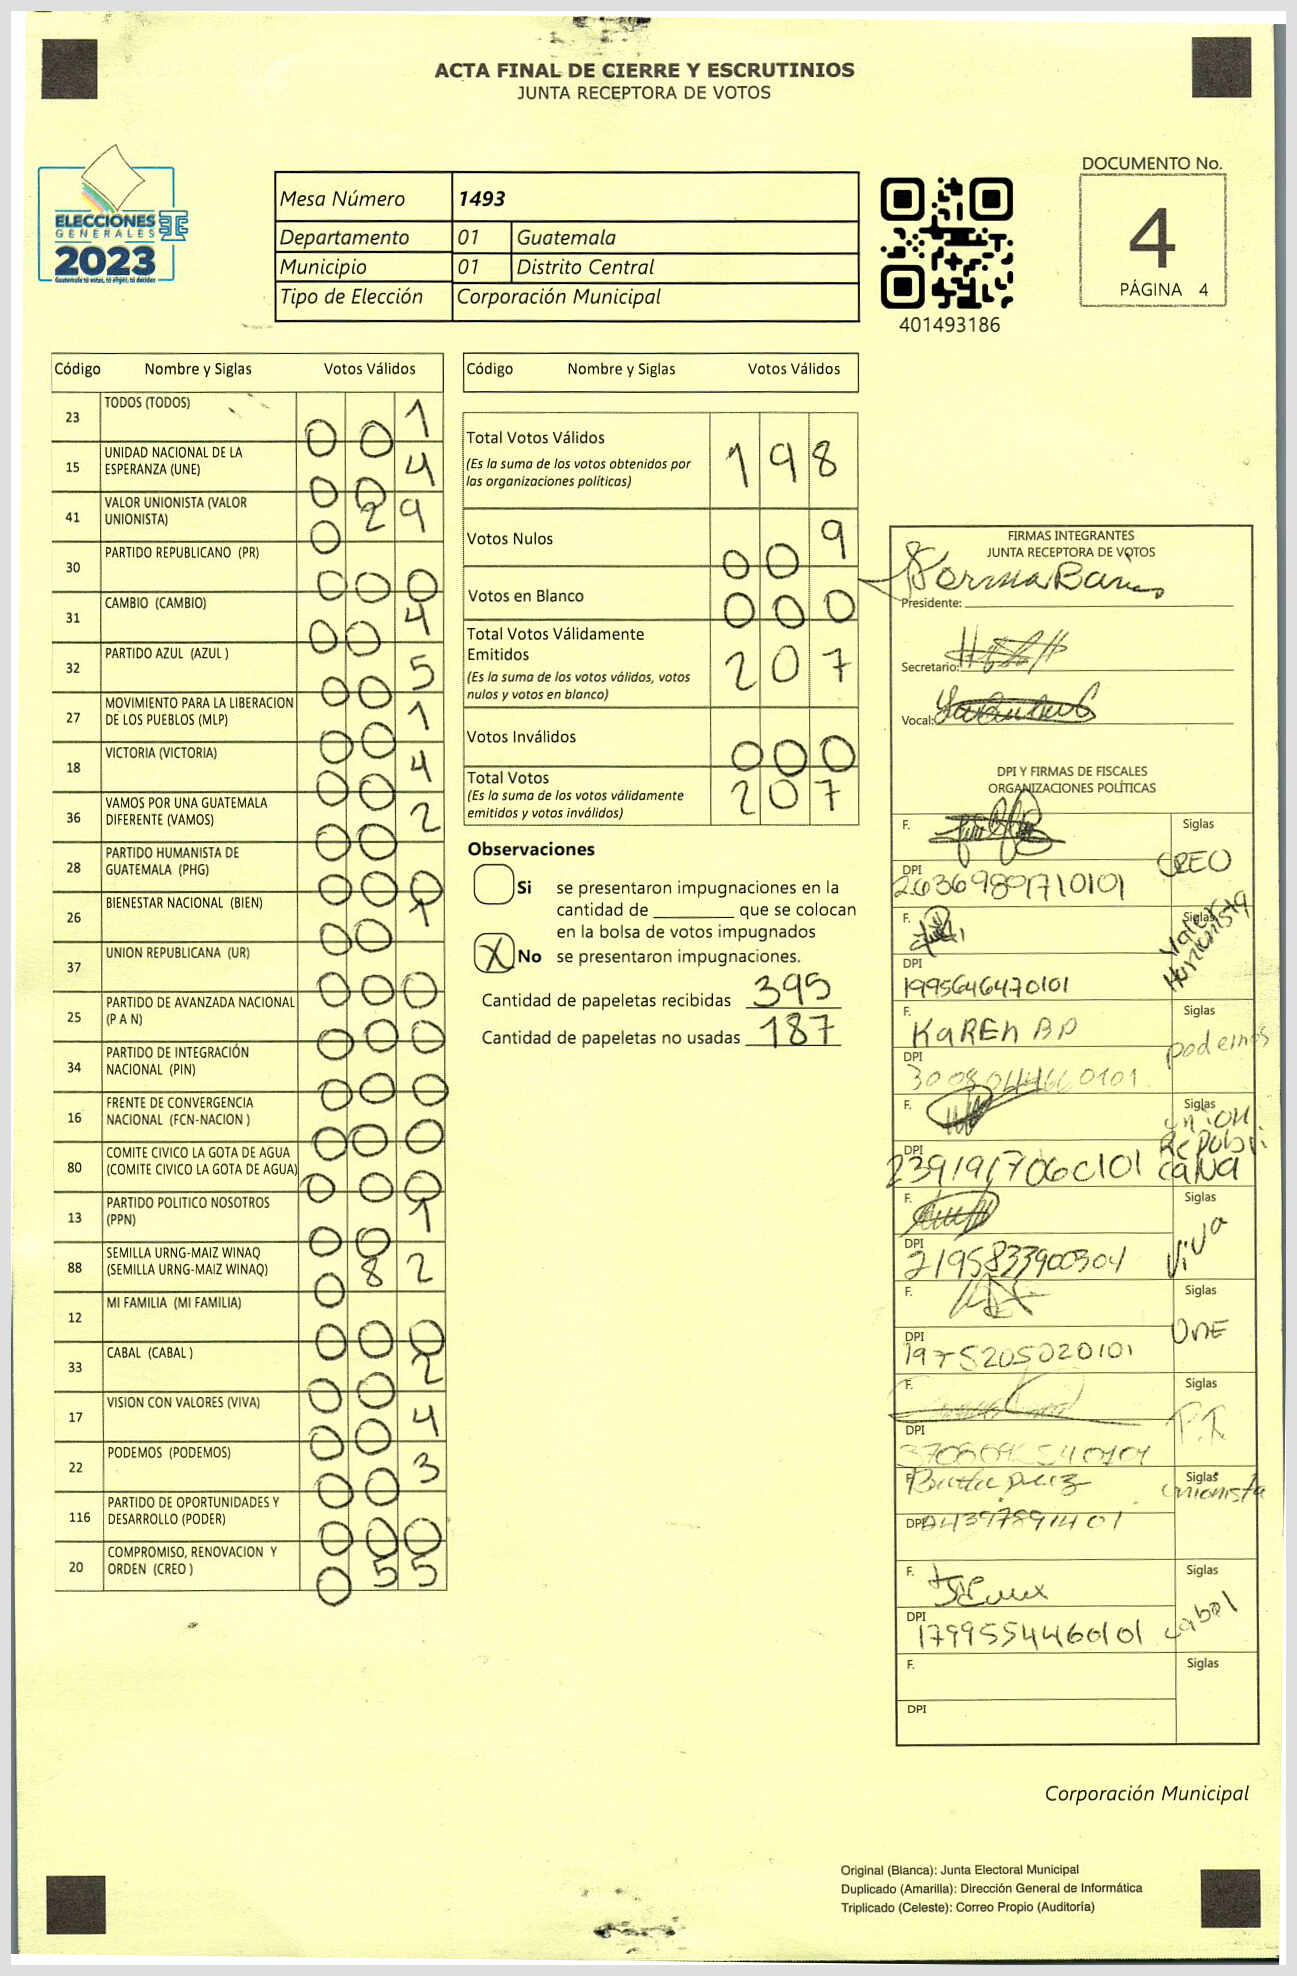 ACTA FINAL DE CIERRE Y ESCRUTINIOS
JUNTA RECEPTORA DE VOTOS
ELECCIONES
GENERALES
2023
Guatemala tú votas, tú eliges, tú decides
Mesa Número 1493
Departamento 01 Guatemala
Municipio 01 Distrito Central
Tipo de Elección Corporación Municipal
401493186
DOCUMENTO No.
4
PÁGINA 4
Código Nombre y Siglas Votos Válidos
23 TODOS (TODOS) 0 0 1
15 UNIDAD NACIONAL DE LA
ESPERANZA (UNE) 0 0 4
41 VALOR UNIONISTA (VALOR
UNIONISTA) 0 2 9
30 PARTIDO REPUBLICANO (PR) 0 0 0
31 CAMBIO (CAMBIO) 0 0 4
32 PARTIDO AZUL (AZUL ) 0 0 5
27 MOVIMIENTO PARA LA LIBERACION
DE LOS PUEBLOS (MLP) 0 0 1
18 VICTORIA (VICTORIA) 0 0 4
36 VAMOS POR UNA GUATEMALA
DIFERENTE (VAMOS) 0 0 2
28 PARTIDO HUMANISTA DE
GUATEMALA (PHG) 0 0 0
26 BIENESTAR NACIONAL (BIEN) 0 0 1
37 UNION REPUBLICANA (UR) 0 0 0
25 PARTIDO DE AVANZADA NACIONAL
(P A N) 0 0 0
34 PARTIDO DE INTEGRACIÓN
NACIONAL (PIN) 0 0 0
16 FRENTE DE CONVERGENCIA
NACIONAL (FCN-NACION ) 0 0 0
80 COMITE CIVICO LA GOTA DE AGUA
(COMITE CIVICO LA GOTA DE AGUA) 0 0 0
13 PARTIDO POLITICO NOSOTROS
(PPN) 0 0 1
88 SEMILLA URNG-MAIZ WINAQ
(SEMILLA URNG-MAIZ WINAQ) 0 8 2
12 MI FAMILIA (MI FAMILIA) 0 0 0
33 CABAL (CABAL ) 0 0 2
17 VISION CON VALORES (VIVA) 0 0 4
22 PODEMOS (PODEMOS) 0 0 3
116 PARTIDO DE OPORTUNIDADES Y
DESARROLLO (PODER) 0 0 0
20 COMPROMISO, RENOVACION Y
ORDEN (CREO ) 0 5 5
Código Nombre y Siglas Votos Válidos
Total Votos Válidos 1 9 8
(Es la suma de los votos obtenidos por
las organizaciones políticas)
Votos Nulos 0 0 9
Votos en Blanco 0 0 0
Total Votos Válidamente
Emitidos 2 0 7
(Es la suma de los votos válidos, votos
nulos y votos en blanco)
Votos Inválidos 0 0 0
Total Votos 2 0 7
(Es la suma de los votos válidamente
emitidos y votos inválidos)
Observaciones
Si se presentaron impugnaciones en la
cantidad de ________ que se colocan
en la bolsa de votos impugnados
X No se presentaron impugnaciones.
Cantidad de papeletas recibidas 395
Cantidad de papeletas no usadas 187
FIRMAS INTEGRANTES
JUNTA RECEPTORA DE VOTOS
Presidente:
Secretario:
Vocal:
DPI Y FIRMAS DE FISCALES
ORGANIZACIONES POLÍTICAS
F. Siglas CREO
DPI 26369891710101
F. Siglas Valor Unionista
DPI 1995646470101
F. KaREn Siglas podemos
DPI
F. Siglas union Republicana
DPI
F. Siglas Viva
DPI 2195833900304
F. Siglas UNE
DPI 1975205020101
F. Siglas
DPI
F. Siglas unionista
DPI
F. Siglas cabal
DPI 1799554460101
F. Siglas
DPI
Corporación Municipal
Original (Blanca): Junta Electoral Municipal
Duplicado (Amarilla): Dirección General de Informática
Triplicado (Celeste): Correo Propio (Auditoría)